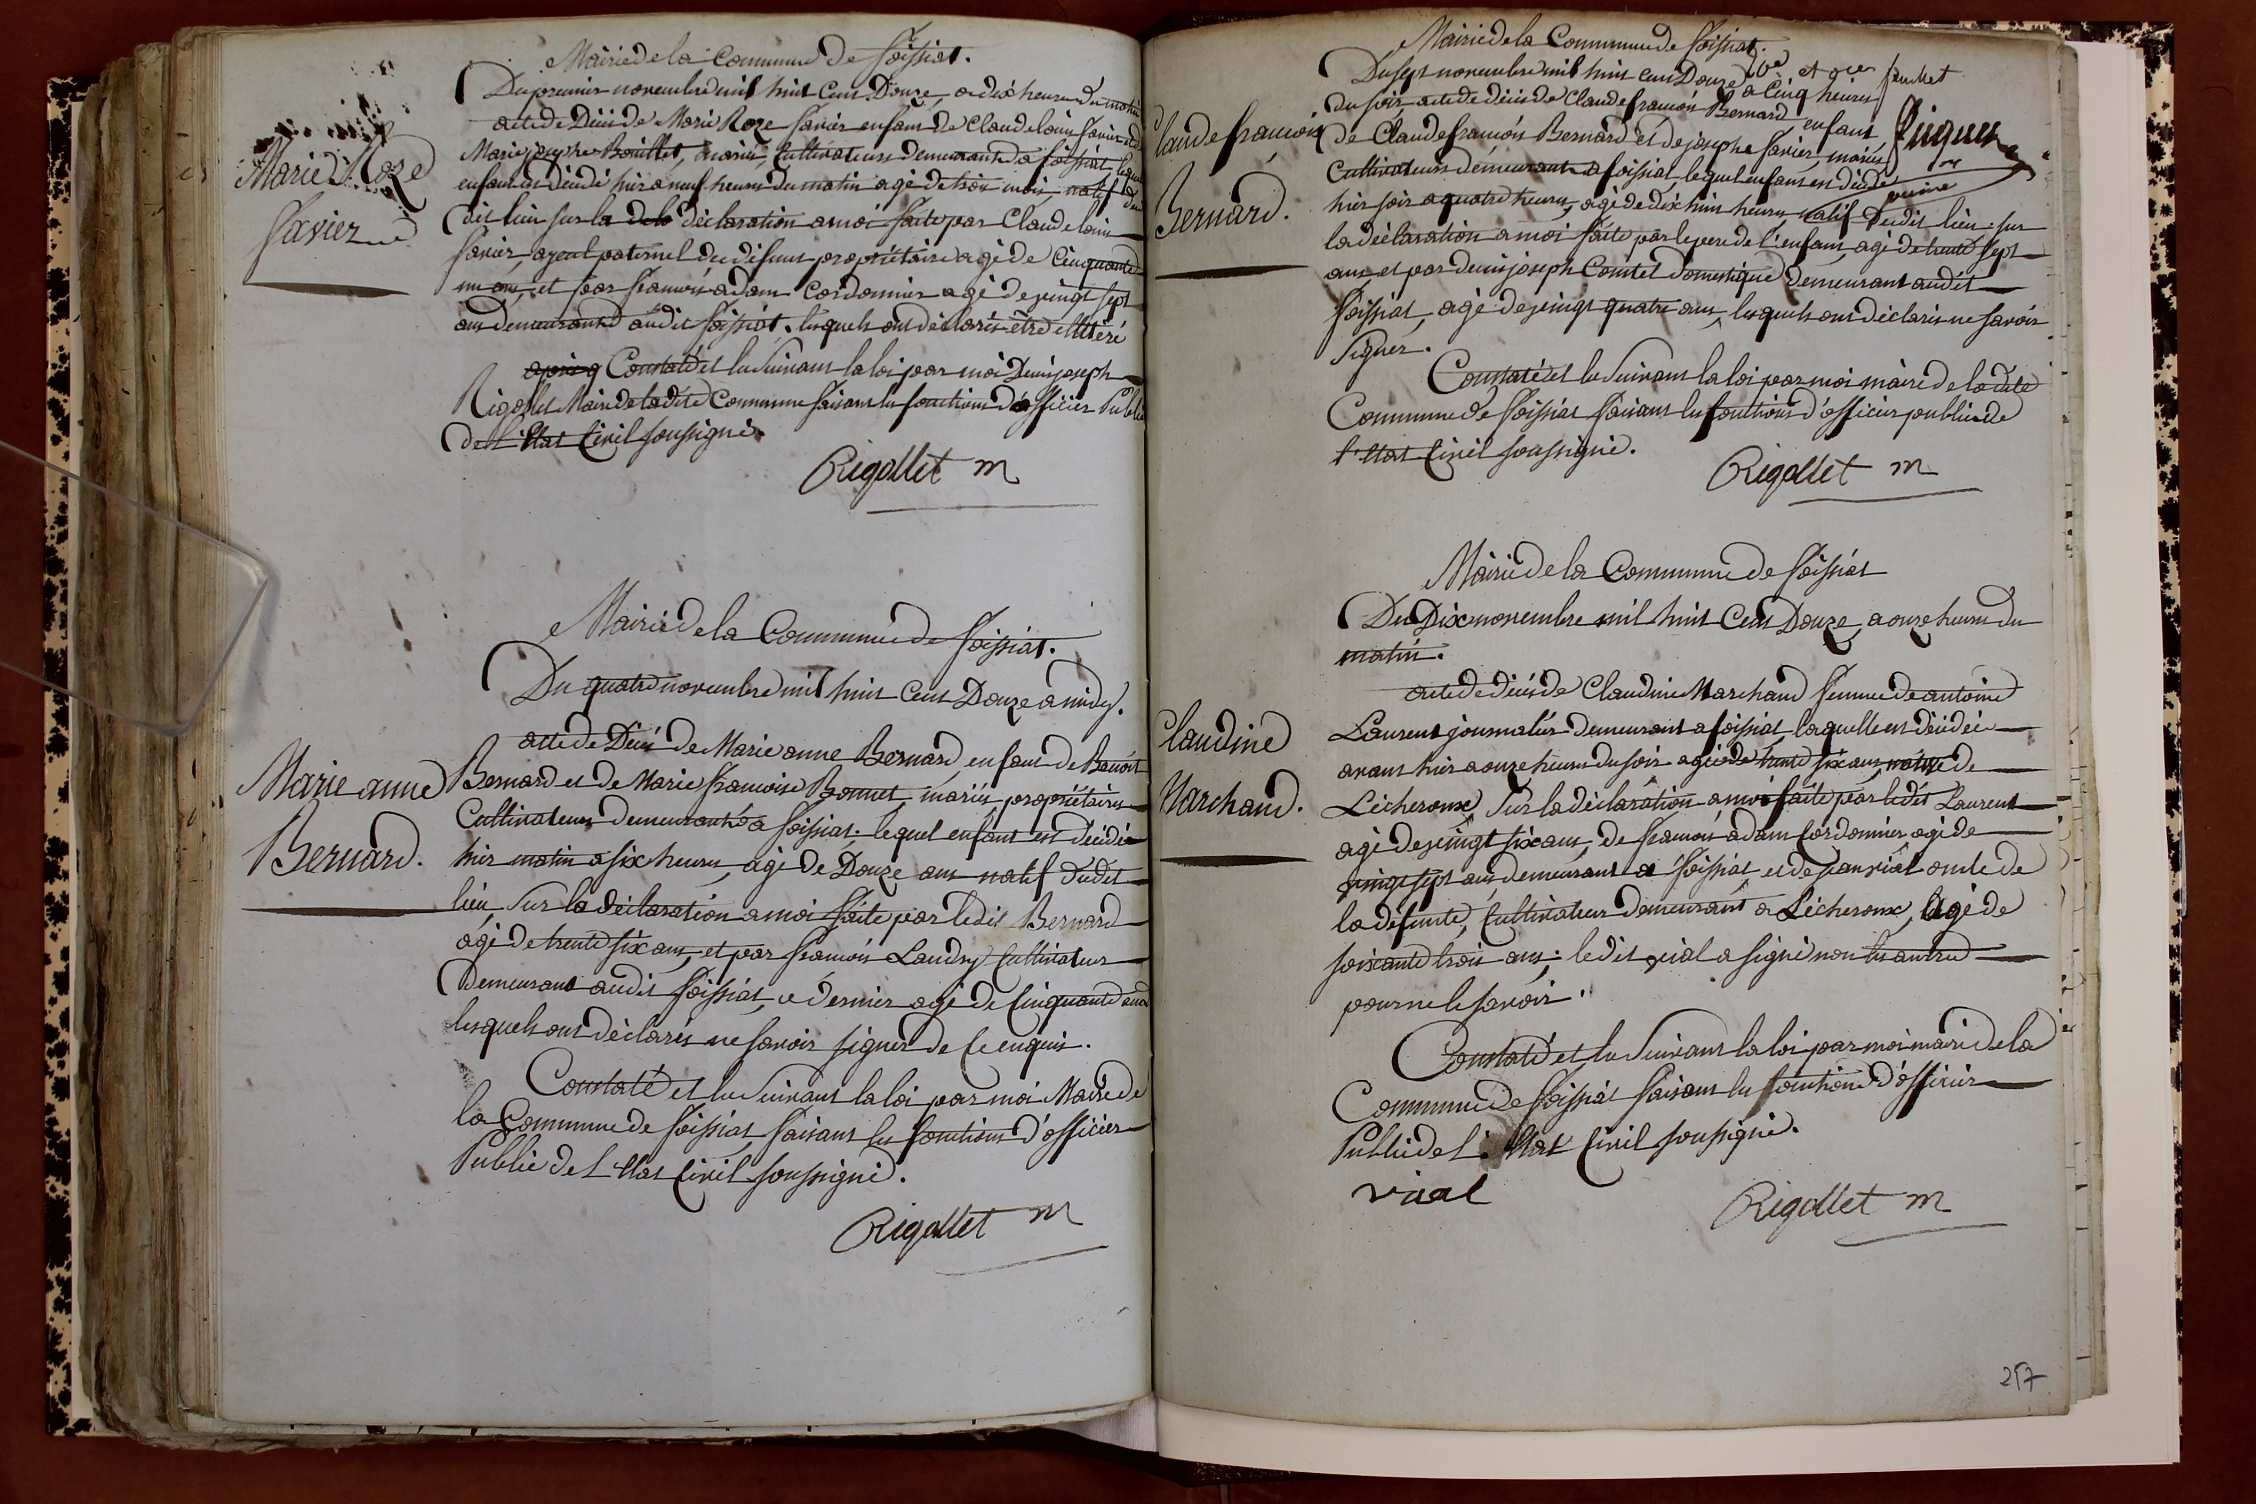 Mairie de la Commune de foissiat.
Du premier novembre mil huit cent Douze, a dix heures du matin
acte de Décé de Marie Roze favier enfant de Claude louis favier et de
Marie josephe Bouillet, mariés, Cultivateurs demeurants a foissiat, lequel
enfant est décédé hier a neuf heures du matin agé de trois mois, natif du
dit lieu sur la dela déclaration a moi faite par Claude louis
favier, ayeul paternel du défunt propriétaire agé de Cinquante
un ans, et par francois adam Cordonnier agé de vingt sept
ans demeurants audit foissiat. lesquels ont déclarés être illitéré
Constaté et lu Suivant la loi par moi Denis joseph
Rigollet Maire de la dite Commune faisant les fonctions d'officier Public
de l'Etat Civil soussigné.
Rigollet m
Marie Roze
favier
Mairie de la Commune de foissiat.
Du quatre novembre mil huit Cent Douze a midy.
acte de Décé de Marie anne Bernard enfant de Benoit
Bernard et de Marie francoise Bonnet, mariés, propriétaires
Cultivateurs demeurants a foissiat. lequel enfant est décédé
hier matin a six heures, agé de Douze ans natif dudit
lieu, Sur la déclaration a moi faite par ledit Bernard
agé de trente six ans, et par francois Laudry Cultivateur
Demeurant audit foissiat, ce dernier agé de Cinquante ans
lesquels ont déclarés ne savoir signer de Ce enquis.
Constaté et lu Suivant la loi par moi Maire de
la Commune de foissiat faisant les fonctions d'officier
Public de l'Etat Civil soussigné.
Rigollet m
Marie anne
Bernard.
Mairie de la Commune de foissiat.
Du sept novembre mil huit cent Douze a Cinq heures
du soir, acte de décés de Claude francois Bernard enfant
de Claude francois Bernard et de josephe favier, mariés
Cultivateurs demeurants a foissiat, lequel enfant est décédé
hier soir a quatre heures, agé de dix huit heures natif Dudit lieu. sur
la déclaration a moi faite par le pere de l'enfant, agé de trente sept
ans et par denis joseph Comtet Domestique demeurant audit
foissiat, agé de vingt quatre ans, lesquels ont déclarés ne savoir
signer.
Constaté et lu Suivant la loi par moi maire de la dite
Commune de foissiat faisant les fonctions d'officier public de
l'Etat Civil soussigné.
Rigollet m
Claude francois
Bernard.
Mairie de la Commune de foissiat
Du Dix novembre mil huit Cent Douze, a onze heures du
matin.
acte de décés de Claudine Marchand femme de antoine
Laurent journalier demeurant a foissiat, laquelle est décédée
avant hier a onze heures du soir agée de trente six ans, native de
Lécheroux, Sur la déclaration a moi faite par ledit Laurent
agé de vingt six ans, de francois adam Cordonnier agé de
vingt sept ans demeurant a foissiat, et de jean vial oncle de
la défunte, Cultivateur demeurant a Lécheroux, agé de
soixante trois ans; ledit vial a signé non les autres
pour ne le savoir.
Constaté et lu Suivant la loi par moi maire de la
Commune de foissiat faisant les fonctions d'officier
Public de l'Etat Civil soussigné.
vial
Rigollet m
Claudine
Marchand.
257